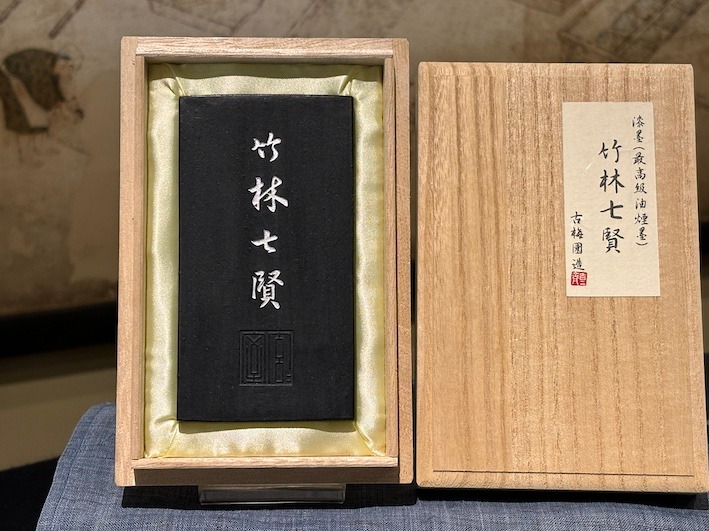 竹林七賢
漆墨(最高級油煙墨)
竹林七賢
古梅園造